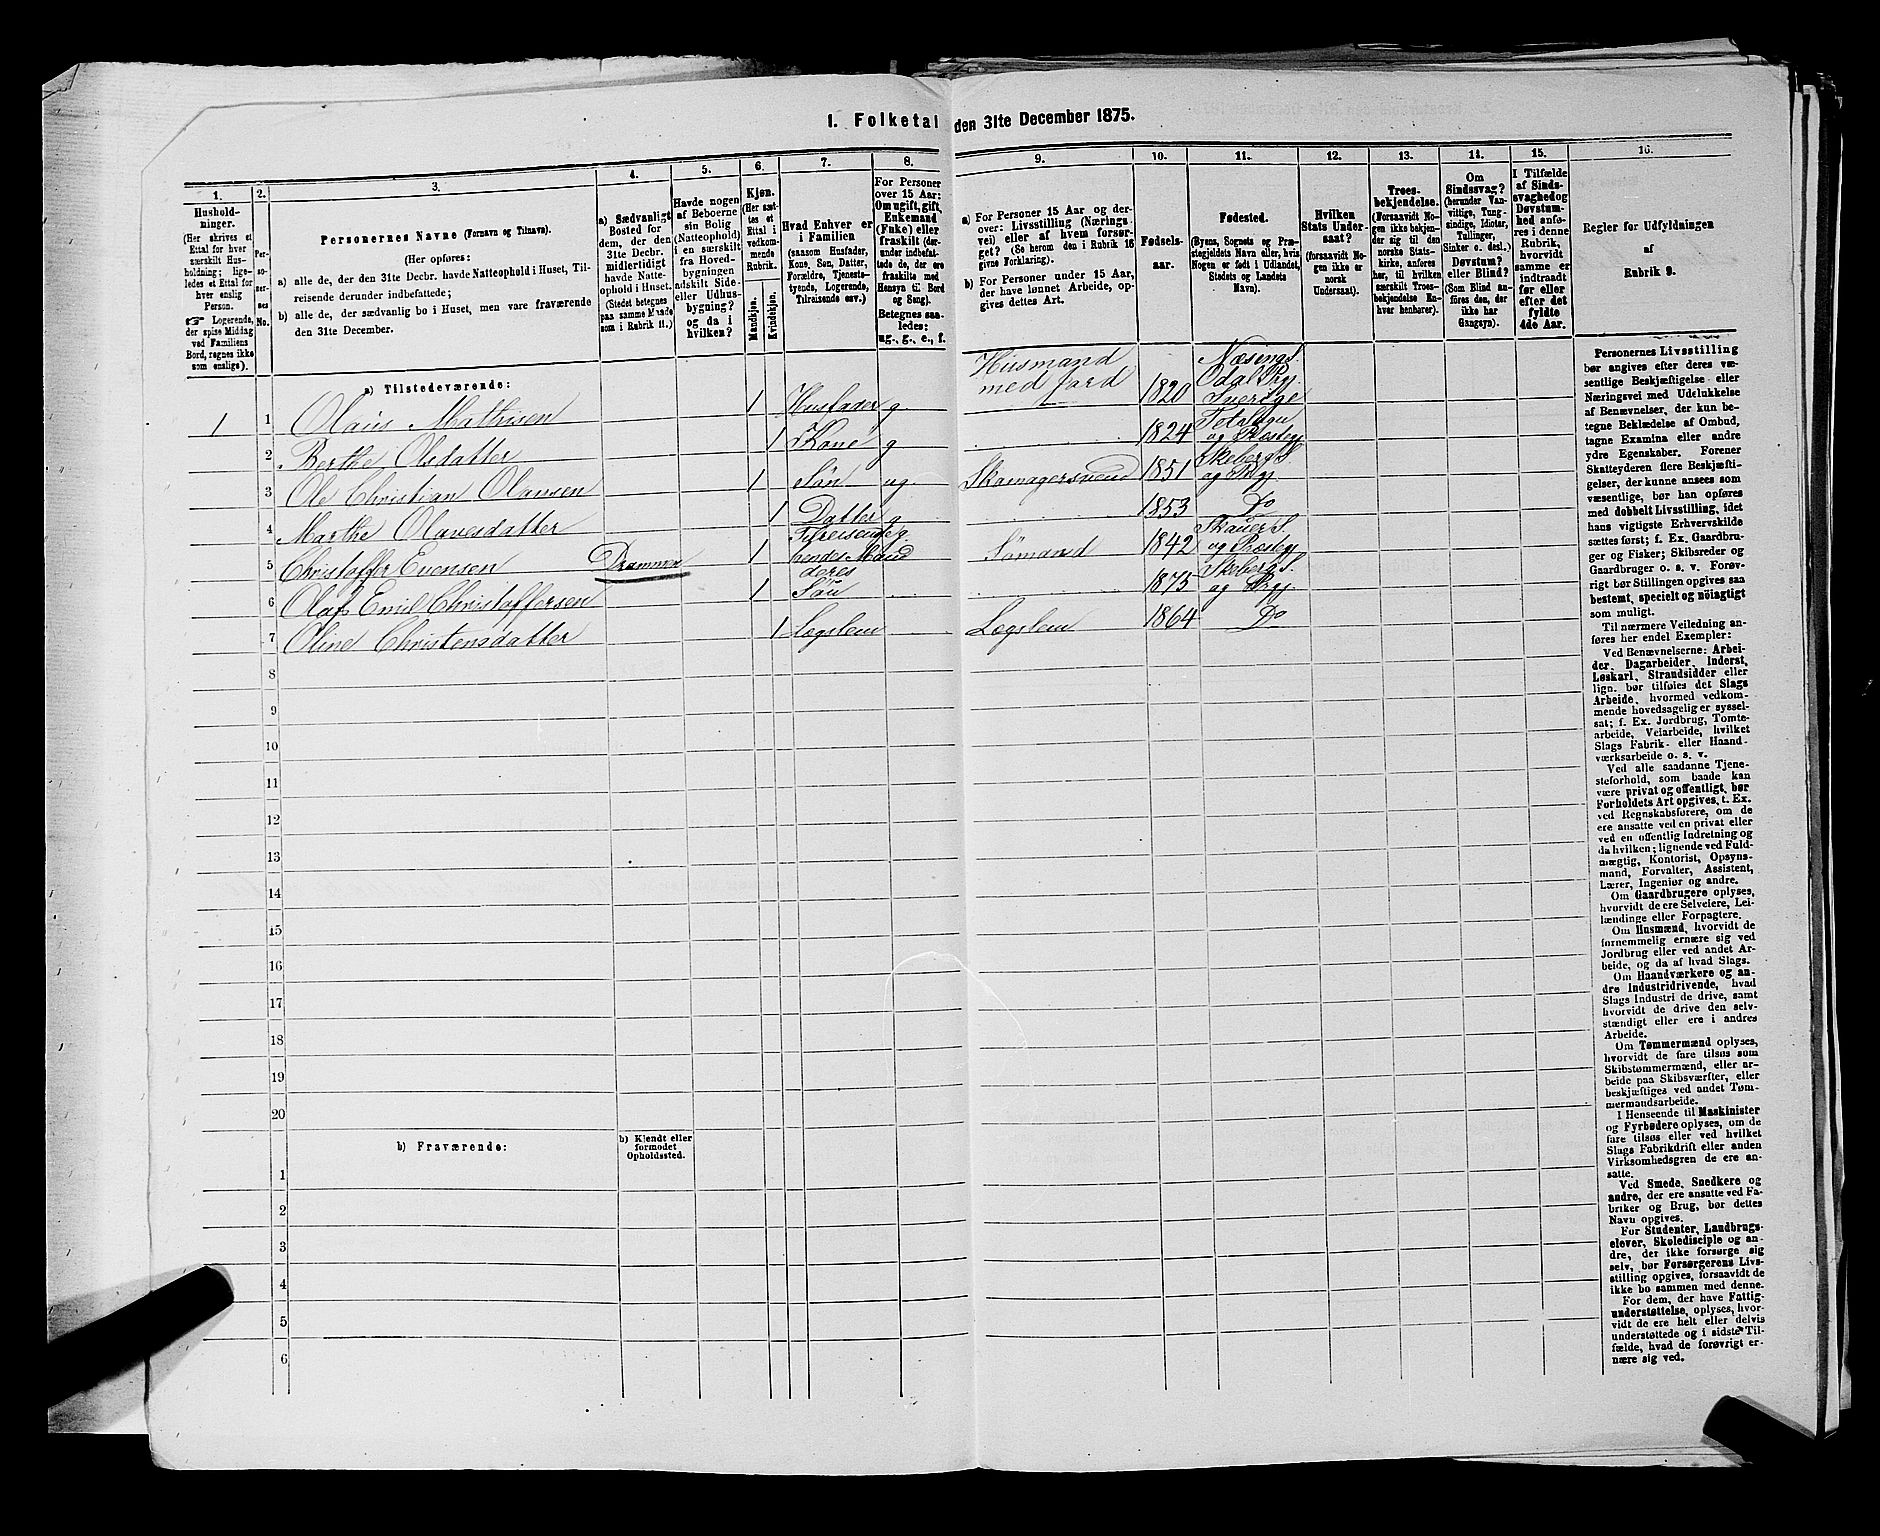 1. Folketal den 31te December 1875.
1. 2. 3. 4. 5. 6. 7. 8. 9. 10. 11. 12. 13. 14. 15. 16.
Hushold-
ninger.
(Her skrives et
Ettal for hver
særskilt Hus-
holdning; lige-
ledes et Ettal for
hver enslig
Person.
☞ Logerende,
der spise Middag
ved Familiens
Bord, regnes ikke
som enslige).
Per-
so-
ner-
nes
No.
Personernes Navne (Fornavn og Tilnavn).
(Her opføres:
a) alle de, der den 31te Decbr. havde Natteophold i Huset, Til-
reisende derunder indbefattede;
b) alle de, der sædvanlig bo i Huset, men vare fraværende
den 31te December.
a) Sædvanligt
Bosted for
dem, der den
31te Decbr.
midlertidigt
havde Natte-
ophold i Huset.
(Stedet betegnes
paa samme Maade
som i Rubrik 11.)
Havde nogen
af Beboerne
sin Bolig
(Natteophold)
i en særskilt
fra Hoved-
bygningen
adskilt Side-
eller Udhus-
bygning?
og da i
hvilken?
Kjøn.
(Her sæt-
tes et
Ettal i
vedkom-
mende
Rubrik.
Mandkjøn.
Kvindekjøn.
Hvad Enhver er
i Familien
(saasom Husfader,
Kone, Søn, Datter,
Forældre, Tjeneste-
tyende, Logerende,
Tilreisende osv.)
For Personer
over 15 Aar:
Om ugift, gift,
Enkemand
(Enke) eller
fraskilt (der-
under indbefat-
tede de, der ere
fraskilte med
Hensyn til Bord
og Seng).
Betegnes saa-
ledes:
ug., g., e., f.
a) For Personer 15 Aar og der-
over: Livsstilling (Nærings-
vei) eller af hvem forsør-
get? (Se herom den i Rubrik 16
givne Forklaring).
b) For Personer under 15 Aar,
der have lønnet Arbeide, op-
gives dettes Art.
Fødsels-
aar.
Fødested.
(Byens, Sognets og Præ-
stegjeldets Navn eller, hvis
Nogen er født i Udlandet,
Stedets og Landets
Navn).
Hvilken
Stats Under-
saat?
(forsaavidt No-
gen ikke er
norsk
Undersaat).
Troes-
bekjendelse.
(Forsaavidt No-
gen ikke bekjen-
der sig til den
norske Stats-
kirke, anføres
her, til hvilken
særskilt Troes-
bekjendelse En-
hver henhører).
Om
Sindssvag?
(herunder Van-
vittige, Tung-
sindige, Idioter,
Tullinger,
Sinker o. desl.)
Døvstum?
eller Blind?
(Som Blind an-
føres den, der
ikke har
Gangsyn).
I Tilfælde
af Sinds-
svaghed og
Døvstum-
hed anfø-
res i denne
Rubrik,
hvorvidt
samme er
indtraadt
før eller
efter det
fyldte
4de Aar.
Regler for Udfyldningen
af
Rubrik 9.
a) Tilstedeværende:
1 1 Olaus Mathisen 1 Husfader g. Husmand med Jord 1820 Næsings. Odal Prgj. Sverige
2 Berthe Olsdatter 1 Kone g 1824 og Præstegj
3 Ole Christian Olausen 1 Søn ug. Skomagersvend 1851 Skebergs. og Prgj.
4 Marthe Olavesdatter 1 Datter g 1853 Do
5 Christoffer Evensen Drammen 1 Tilreisende g. hendes Mand Sømand 1842 og Præstegj
6 Olaf Emil Christoffersen 1 deres Søn 1873 Skebergs. og Prgj.
7 Oline Christensdatter 1 Lægslem Lægslem 1864 Do
8
9
10
11
12
13
14
15
16
17
18
19
20
b) Fraværende:
b) Kjendt eller
formodet
Opholdssted.
1
2
3
4
5
6
Personernes Livsstilling
bør angives efter deres væ-
sentlige Beskjæftigelse eller
Næringsvei med Udelukkelse
af Benævnelser, der kun be-
tegne Beklædelse af Ombud,
tagne Examina eller andre
ydre Egenskaber. Forener
Skatteyderen flere Beskjæfti-
gelser, der kunne ansees som
væsentlige, bør han opføres
med dobbelt Livsstilling, idet
hans vigtigste Erhvervskilde
sættes først; f. Ex. Gaardbru-
ger og Fisker; Skibsreder og
Gaardbruger o. s. v. Forøv-
rigt bør Stillingen opgives saa
bestemt, specielt og nøiagtigt
som muligt.
Til nærmere Veiledning an-
føres her endel Exempler:
Ved Benævnelserne: Arbei-
der, Dagarbeider, Inderst,
Løskarl, Strandsidder eller
lign. bør tilføies det Slags
Arbeide, hvormed vedkom-
mende hovedsagelig er syssel-
sat; f. Ex. Jordbrug, Tomte-
arbeide, Veiarbeide, hvilket
Slags Fabrik- eller Haand-
værksarbeide o. s. v.
Ved alle saadanne Tjene-
steforhold, som baade kan
være privat og offentligt, bør
Forholdets Art opgives, t. Ex.
ved Regnskabsførere, om de
ere ansatte ved en privat eller
ved en offentlig Indretning og
da hvilken; lignende ved Fuld-
mægtig, Kontorist, Opsyns-
mand, Forvalter, Assistent,
Lærer, Ingeniør og andre.
Om Gaardbrugere oplyses,
hvorvidt de ere Selveiere, Lei-
lændinge eller Forpagtere.
Om Husmænd, hvorvidt de
fornemmelig ernære sig ved
Jordbrug eller ved andet Ar-
beide, og da af hvad Slags.
Om Haandværkere og an-
dre Industridrivende, hvad
Slags Industri de drive, samt
hvorvidt de drive den selv-
stændigt eller ere i andres
Arbeide.
Om Tømmermænd oplyses,
hvorvidt de fare tilsøs som
Skibstømmermænd, eller ar-
beide paa Skibsværfter, eller
beskjæftiges ved andet Tøm-
mermandsarbeide.
I Henseende til Maskinister
og Fyrbødere oplyses, om de
fare tilsøs eller ved hvilket
Slags Fabrikdrift eller anden
Virksomhedsgren de ere an-
satte.
Ved Smede, Snedkere og
andre, der ere ansatte ved Fa-
briker og Brug, bør dettes
Navn opgives.
For Studenter, Landbrugs-
elever, Skoledisciple og an-
dre, der ikke forsørge sig
selv, bør Forsørgerens Livs-
stilling opgives, forsaavidt de
ikke bo sammen med denne.
For dem, der have Fattig-
understøttelse, oplyses, hvor-
vidt de ere helt eller delvis
understøttede og i sidste Til-
fælde, hvad de forøvrigt er-
nære sig ved.